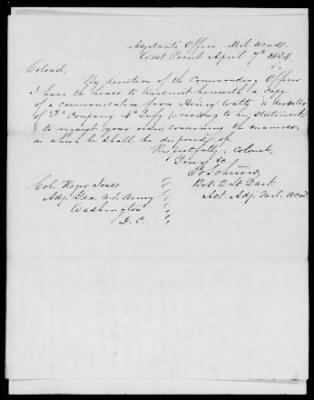 Adjutant's Office Mil. Acad.
West Point April 7th 1834
Colonel,
By direction of the Commanding Officer
I have the honor to transmit herewith a copy
of a communication from Henry Watts a deserter
of "F" Company 4th Infy
to request your orders concerning the manner
in which he shall be disposed of.
Respectfully, Colonel,
Your
Col. Roger Jones
Bvt. 2d Lieut.
Adj. Gen. U.S. Army
Act. Adj. Mil. Acad.
Washington
D.C.